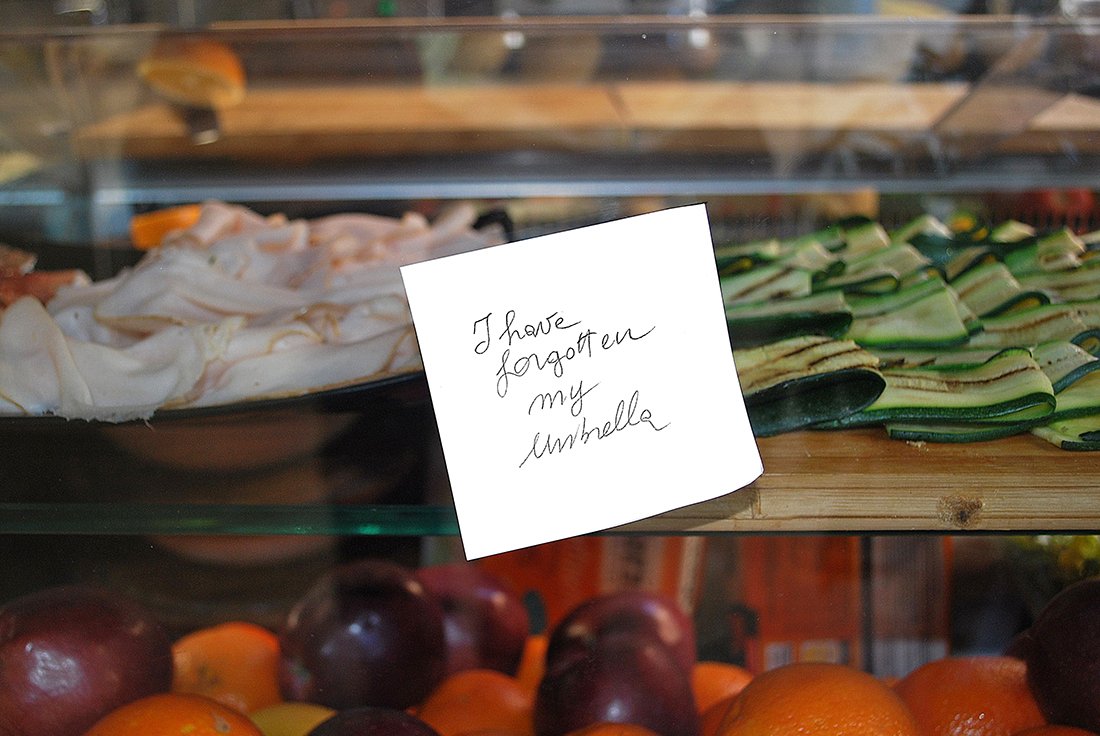 I have
forgotten
my
umbrella